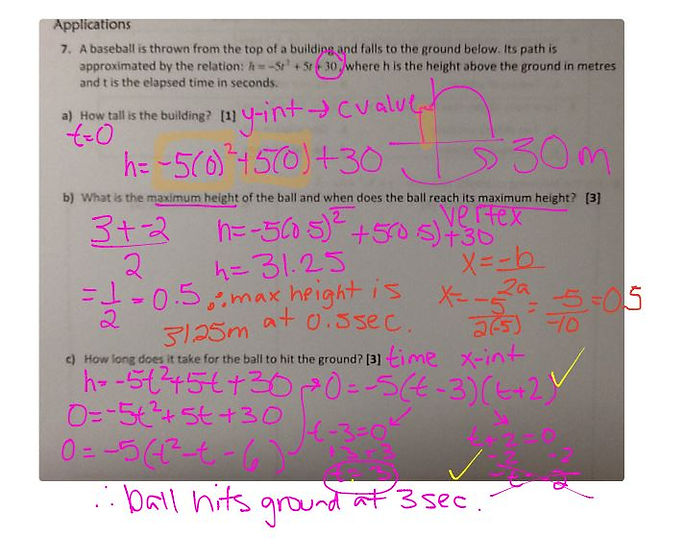 Applications
7. A baseball is thrown from the top of a building and falls to the ground below. Its path is
approximated by the relation: h = -5t² + 5t + 30, where h is the height above the ground in metres
and t is the elapsed time in seconds.
a) How tall is the building? [1] y-int → c value
t=0
h= -5(0)²+5(0)+30 30m
b) What is the maximum height of the ball and when does the ball reach its maximum height? [3]
vertex
3+-2
2
h=-5(0.5)²+5(0.5)+30
h= 31.25
= 1/2 = 0.5
x = -b/2a
x= -5/2(-5) = -5/-10 = 0.5
∴ max height is
31.25m at 0.5sec.
c) How long does it take for the ball to hit the ground? [3] time x-int
h= -5t²+5t+30
0=-5t²+5t+30
0= -5(t²-t-6)
0=-5(t-3)(t+2)
t-3=0
+3 +3
t=3
t+2=0
-2 -2
t=-2
∴ ball hits ground at 3 sec.